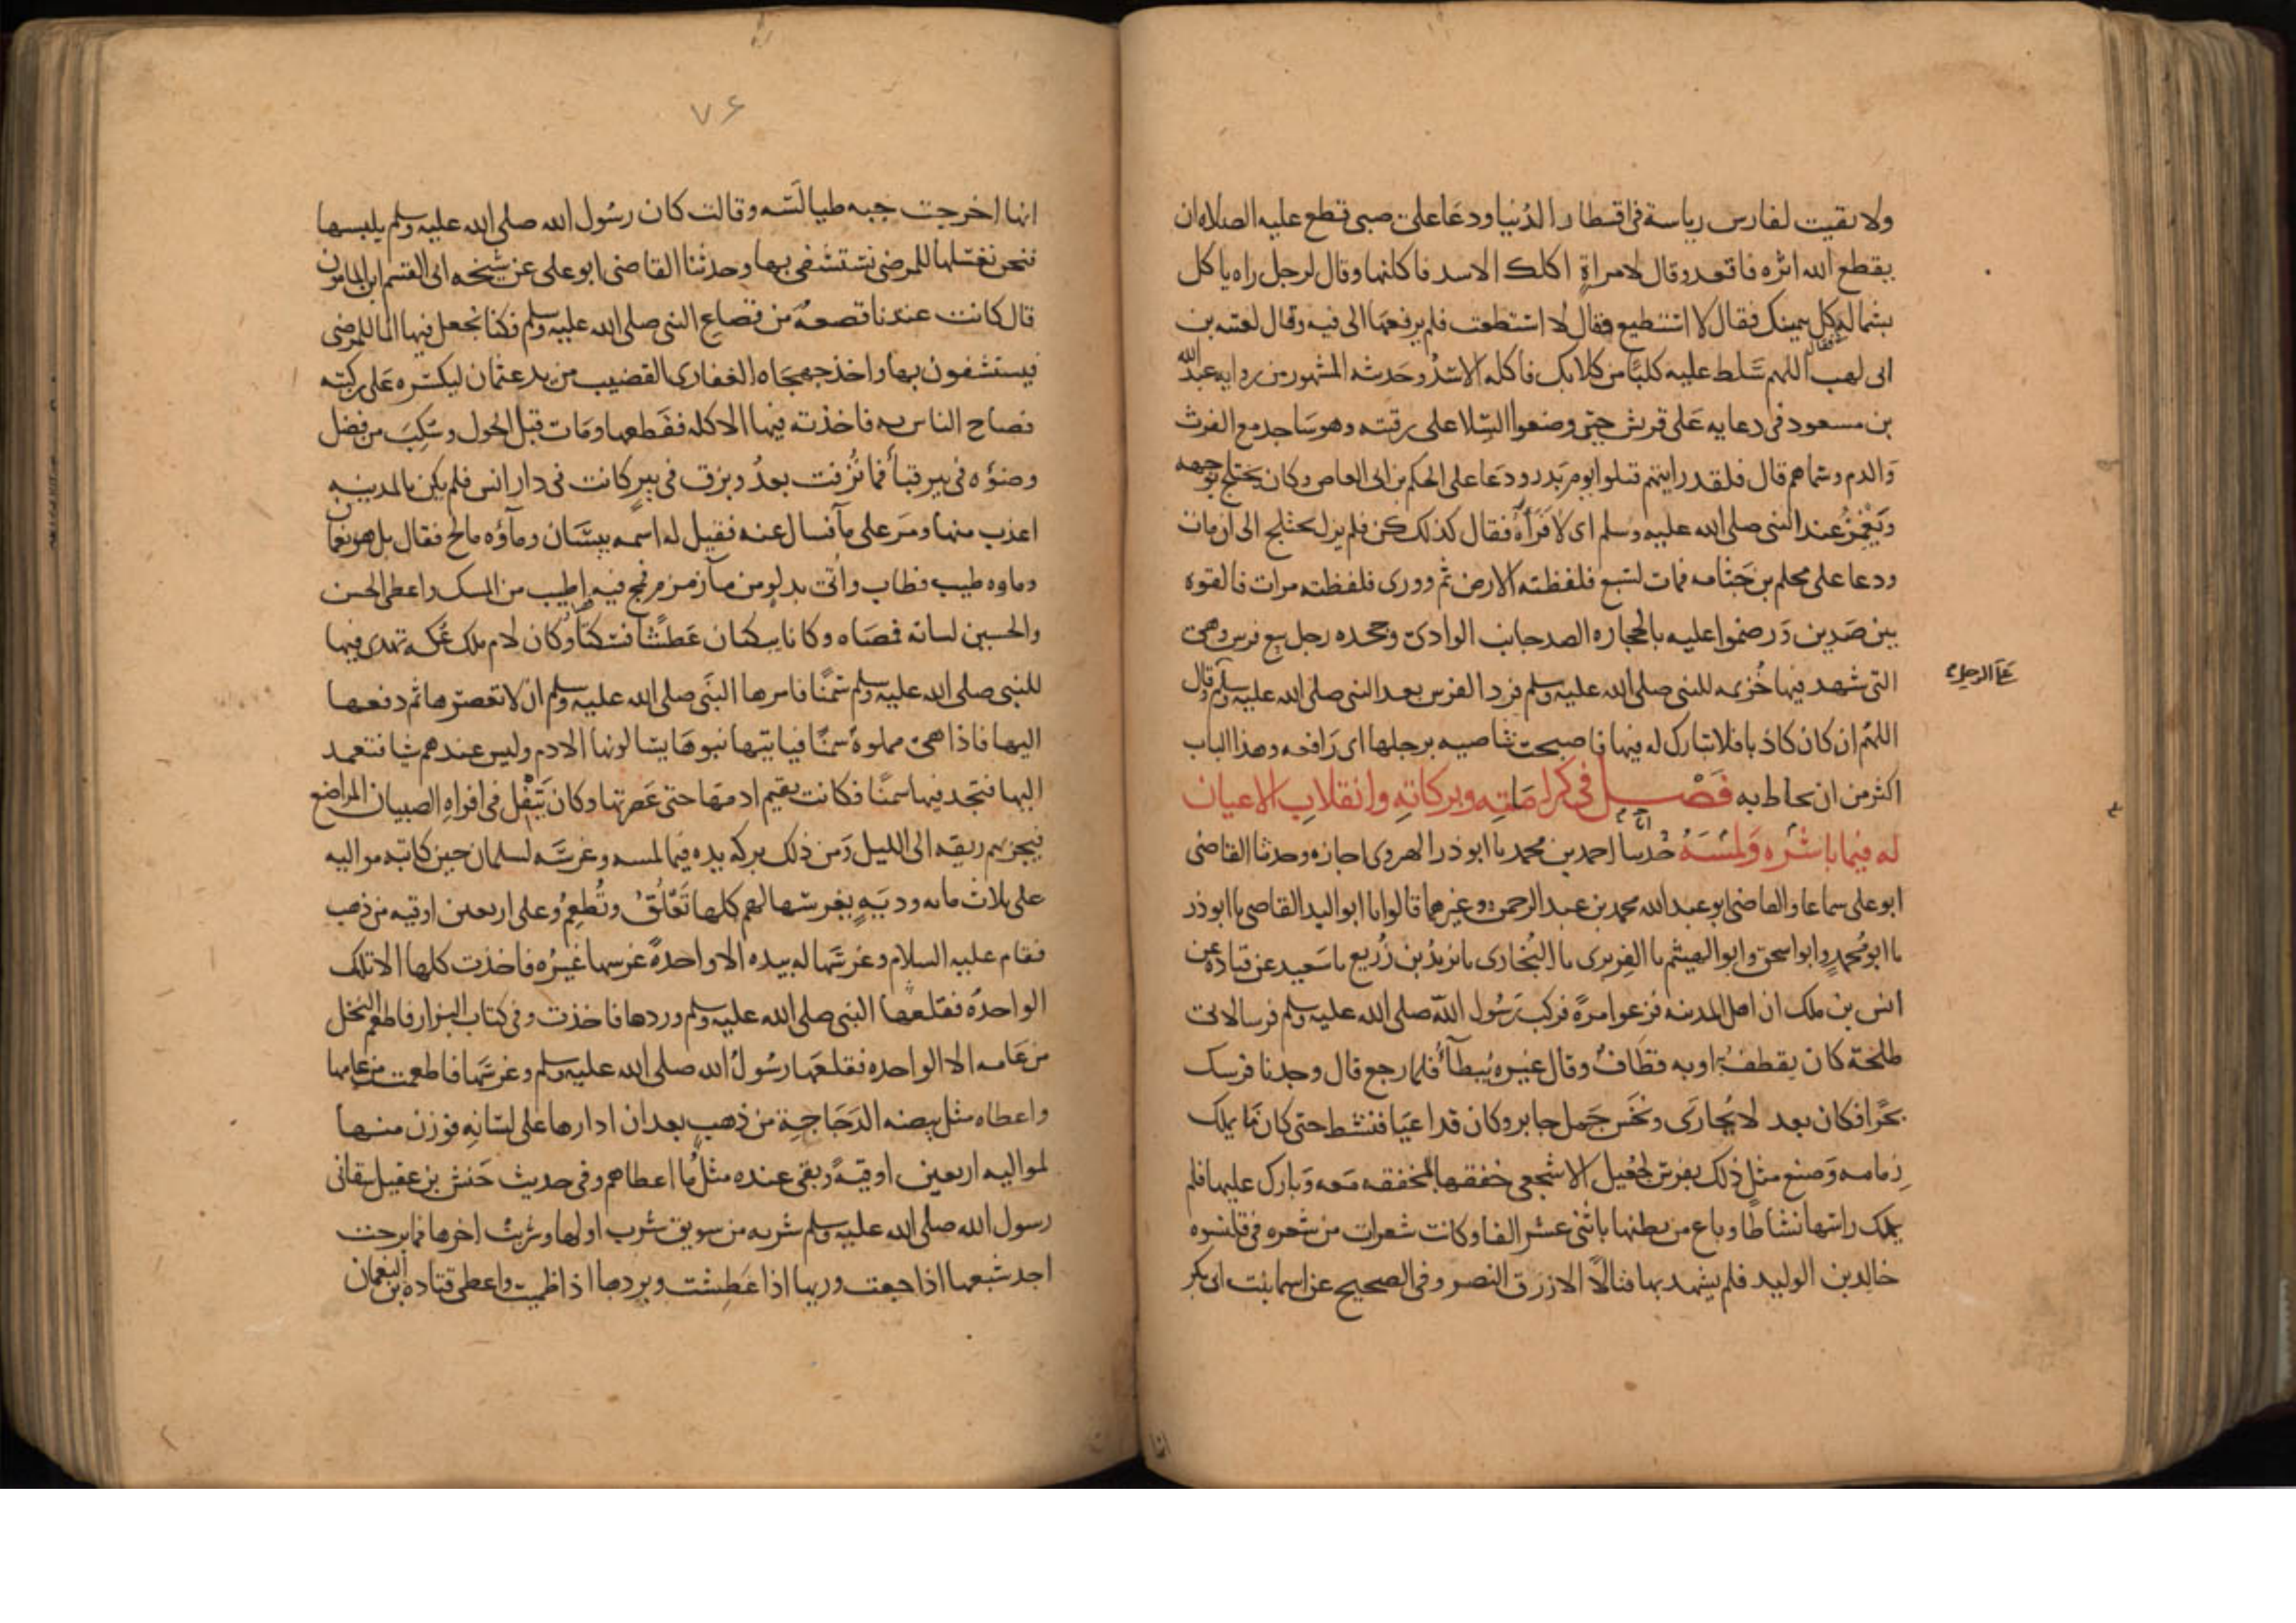 ولا بقيت لفارس رياسة في اقطار الدنيا ودعا على صبي قطع عليه الصلاه ان
يقطع الله اثره فاقعد وقال لامراةٍ اكلك الاسد فاكلها وقال لرجل راه ياكل
بشماله كل بيمينك فقال لا استطيع فقال لا استطعت فلم يرفعها الى فيه وقال لعتبه بن
ابى لهب اللهم سلط عليه كلبًا من كلابك فاكله الاسدُ وحديثه المشهور من روايه عبد الله
بن مسعود فى دعايه على قريش حين وضعوا السلا على رقبته وهو ساجد مع الفرث
والدم وسماهم قال فلقد رايتهم قتلوا يوم بدر ودعا على الحكم بن ابى العاص وكان يختلج بوجهه
ويغمز عند النبى صلى الله عليه وسلم اى لا فراٰه فقال كذلك كن فلم يزل يختلج الى ان مات
ودعا على محلم بن جثامه فمات لسبع فلفظته الارض ثم وورى فلفظته مرات فالقوه
بين صدين ورضموا عليه بالحجاره الصد جانب الوادى وجحده رجل بيع فرس وهى
التى شهد فيها خزيمه للنبى صلى الله عليه وسلم فرد الفرس بعد النبى صلى الله عليه وسلم وقال
على الرجل
اللهم ان كان كاذبا فلا تبارك له فيها فاصبحت شاصيه برجلها اى رافعه وهذا الباب
اكثر من ان يحاط به فَصْل فى كراماتِه وبركاتِهِ وانقلاب الاعيان
له فيما باشره ولمسه حدثنا احمد بن محمد نا ابو ذر الهروى اجازه وحدثنا القاضى
ابو على سماعا والقاضى ابو عبد الله محمد بن عبد الرحمن وغيرهما قالوا نا ابو الوليد القاضى نا ابو ذر
نا ابو محمدٍ وابو اسحق وابو الهيثم نا الفربرى نا البخارى نا يزيدُ بن زُريع نا سعيد عن قتادة عن
انس بن ملك ان اهل المدينه فزعوا مرةً فركب رَسُول اللّه صلى الله عليه وسلم فرسا لابى
طلحة كان يقطفُ او به قطافٌ وقال غيره يُبطأُ فلما رجع قال وجدنا فرسك
بحرًا فكان بعد لا يُجارى ونخس جمل جابر وكان قد اعيا فنشط حتى كان ما يملك
زمامه وصنع مثل ذلك بفرسٍ لجعيل الاشجعى خفقها بمخفقه معه وبارك عليها فلم
يملك راسها نشاطًا وباع من بطنها باثنى عشر الفا وكانت شعرات من شعره فى قلنسوه
خالد بن الوليد فلم يشهد بها قتالًا الا رزق النصر وفى الصحيح عن اسما بنت ابى بكر
انها
٧٦
انها اخرجت جبه طيالسَه وقالت كان رسُول الله صلى الله عليه وسلم يلبسها
فنحن نغسلها للمرضى نستشفى بها وحدثنا القاضى ابو على عن شيخه ابى القسم ابن المامون
قال كانت عندنا قصعه من قصاع النبى صلى الله عليه وسلم فكنا نجعل فيها الما للمرضى
فيستشفون بها واخذ جهجاه الغفارى القضيب من يد عثمان ليكسره على ركبته
فصاح الناس به فاخذته فيها الاكله فقطعها ومات قبل الحول وسكب من فضل
وضوٰه فى بير قبا فما نُزفت بعدُ وبزق فى بيرٍ كانت فى دار انس فلم يكن بالمدينه
اعذب منها ومر على مآ فسال عنه فقيل له اسمه بيسَّان ومآؤه مالح فقال بل هو نعمان
وماوه طيب فطاب واُتى بدلو من مآ زمزم فمج فيه اطيب من المسك واعطى الحسن
والحسين لسانه فمصاه وكانا يبكيان عطشًا فسكتا وكان لام ملك عكه تهدى فيها
للنبى صلى الله عليه وسلم سمنًا فامرها النبى صلى الله عليه وسلم ان لا تعصرها ثم دفعها
اليها فاذا هى مملوةٌ سمنًا فياتيها بنوها يسالونها الادم وليس عندهم شيا فتعمد
اليها فتجد فيها سمنًا فكانت تقيم ادمها حتى عصرتها وكان يتفل فى افواه الصبيان المراضع
فيجزيهم ريقه الى الليل ومن ذلك بركه يده فيما لمسه وغرسَه لسلمان حين كاتبه مواليه
على ثلاث مايه وديَّهٍ يغرسها لهم كلها تعْلُق وتُطعِمُ وعلى اربعين اوقيه من ذهب
فقام عليه السلام وغرسها له بيده الا واحدةً غرسها غيرُه فاخذت كلها الا تلك
الواحدةَ فقلعها النبى صلى الله عليه وسلم وردها فاخذت وفى كتاب البزار فاطعم النخل
من عامه الا الواحده فقلعها رسُولُ الله صلى الله عليه وسلم وغرسَها فاطعمت من عامها
واعطاه مثل بيضه الدجاجةِ من ذهب بعد ان ادارها على لسَانه فوزن منها
لمواليه اربعين اوقيةً وبقى عنده مثلُ ما اعطاهم وفى حديث حنش بن عقيل سقانى
رسول الله صلى الله عليه وسلم شربه من سويق شرب اولها وشربتُ اخرها فما برحت
اجد شبعها اذا جعت وريها اذا عَطِشت وبردها اذا ظميت واعطى قتاده بن النعمان